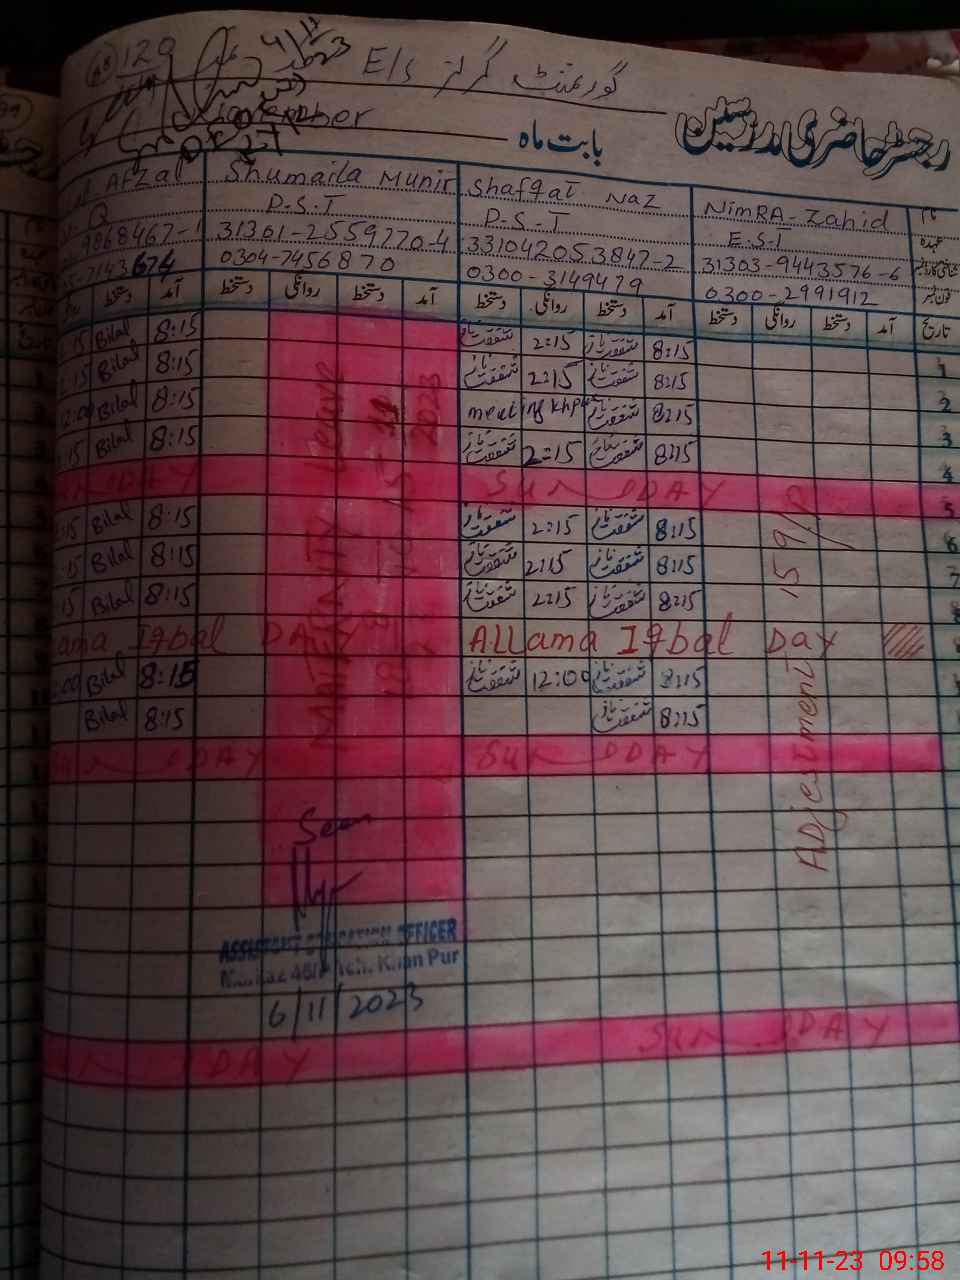 120
گورنمنٹ گرلز E/s
رجسٹر حاضری مدرسین
بابت ماہ
November
Afzal
Shumaila Munir
Shafqat Naz
NimRA-Zahid
نام
Q
P.S.T
P-S-T
E.S.T
عہدہ
9868467-1
31301-2559220-4
331042053847-2
31303-9443576-6
شناختی کارڈ نمبر
7143674
0304-7456870
0300-3149479
0300-2991912
فون نمبر
دستخط آمد
دستخط روانگی دستخط آمد
دستخط روانگی دستخط آمد
دستخط روانگی دستخط آمد
تاریخ
15 Bilal 8:15 شفقت ناز 2:15 شفقت ناز 8:15 1
:15 Bilal 8:15 شفقت ناز 2:15 شفقت ناز 8:15 2
12:00 Bilal 8:15 meeting khpur شفقت ناز 8:15 3
:15 Bilal 8:15 شفقت ناز 2:15 شفقت ناز 8:15 4
SUNDAY 5
:15 Bilal 8:15 شفقت ناز 2:15 شفقت ناز 8:15 6
:15 Bilal 8:15 شفقت ناز 2:15 شفقت ناز 8:15 7
15 Bilal 8:15 شفقت ناز 2:15 شفقت ناز 8:15 8
ama Iqbal DAY ALLama Iqbal Day
:00 Bilal 8:15 شفقت ناز 12:00 شفقت ناز 8:15
Bilal 8:15 شفقت ناز 8:15
SUNDAY
MATERNITY Leave
2023
Adjestment 159/P
Seen
ASSISTANT EDUCATION OFFICER
Khan Pur
6/11/2023
SUNDAY
11-11-23 09:58